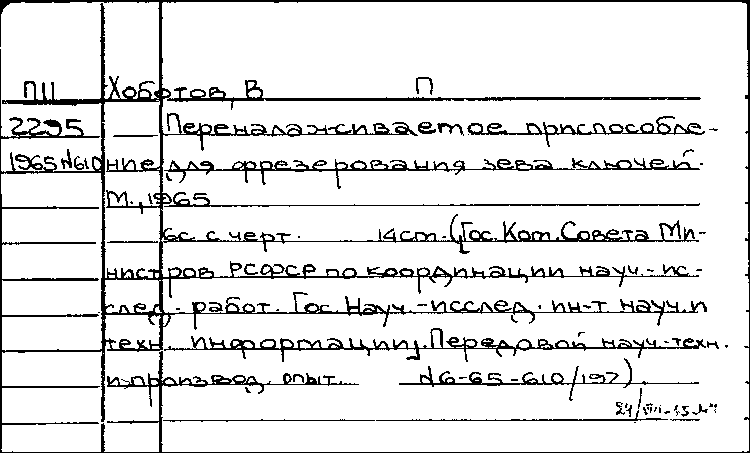 ПII Хоботов, В П
2295 Переналаживаемое приспособле-
1965 №610 ние для фрезерования зева ключей.
М., 1965
6с. с черт. 14см. (Гос. Ком. Совета Ми-
нистров РСФСР по координации науч.-ис-
след. работ. Гос. Науч.-исслед. ин-т науч. и
техн. информации). Передовой науч.-техн.
и производ. опыт. №6-65-610/197).